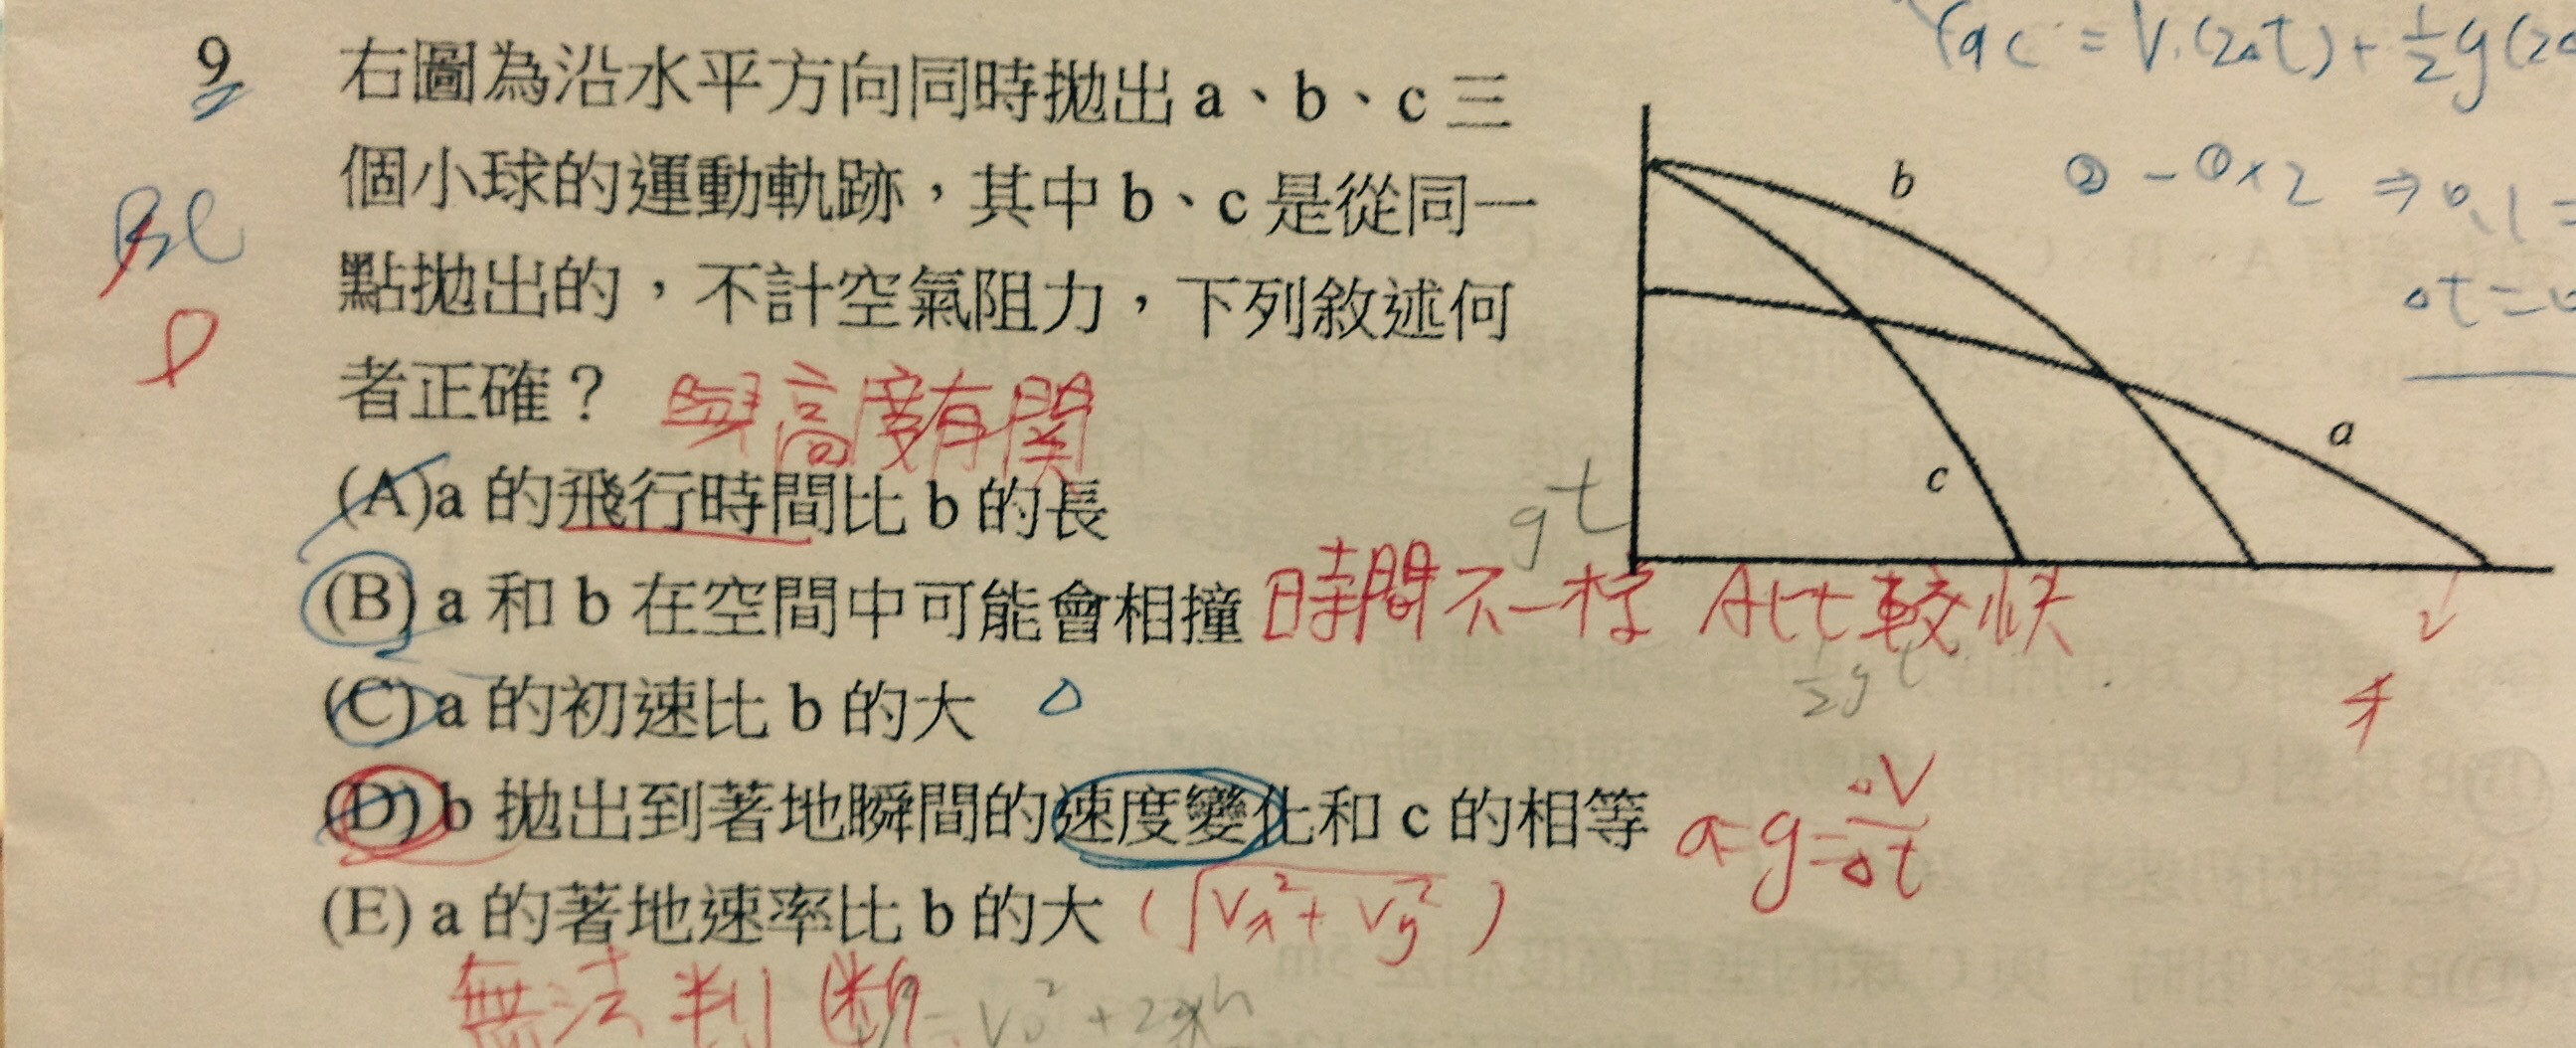 9 右圖為沿水平方向同時拋出 a、b、c 三
個小球的運動軌跡,其中 b、c 是從同一
點拋出的,不計空氣阻力,下列敘述何
者正確? 與高度有關
(A)a 的飛行時間比 b 的長
(B) a 和 b 在空間中可能會相撞 時間不一樣
(C) a 的初速比 b 的大
(D) b 拋出到著地瞬間的速度變化和 c 的相等 a=g=ΔV/Δt
(E) a 的著地速率比 b 的大 (√Vx²+Vy²)
無法判斷
② - ①×2 ⇒ 0.1 =
b
a
c
gt